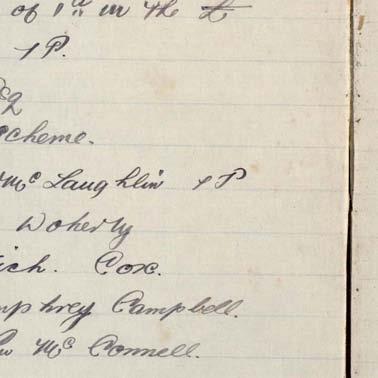 of 1d in the £
1 P.
Eq
Scheme.
McLaughlin 1 P
Doherty
ich. Cox.
mphrey Campbell.
McConnell.